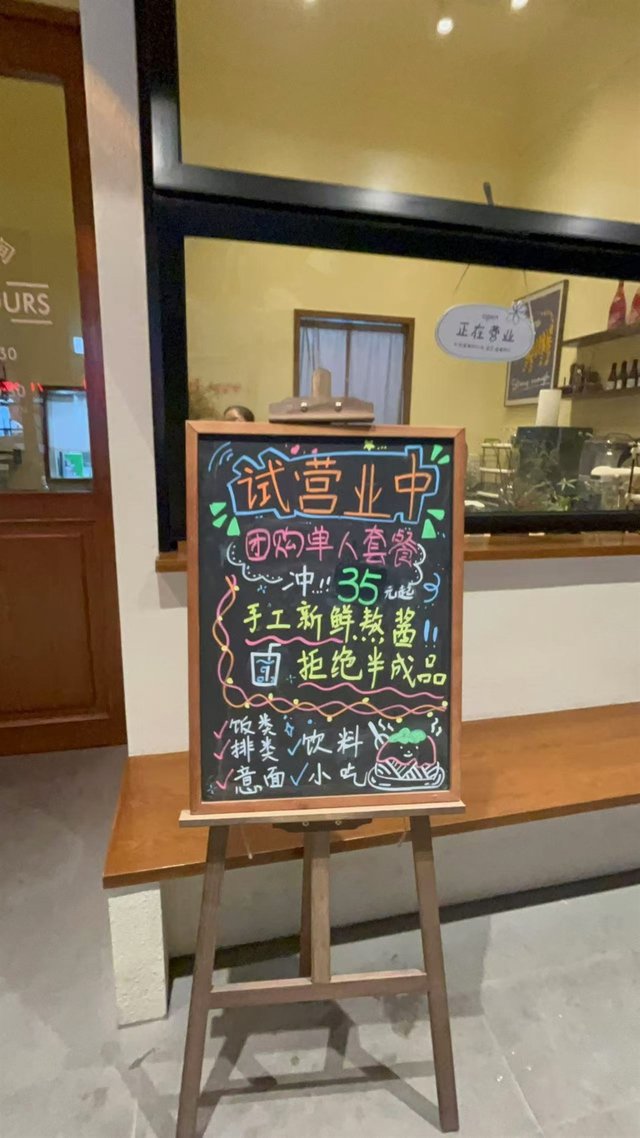 OURS
30
open
正在营业
试营业中
团购单人套餐
冲!! 35元起
手工新鲜熬酱!!
拒绝半成品
✓饭类
✓排类 ✓饮料
✓意面 ✓小吃